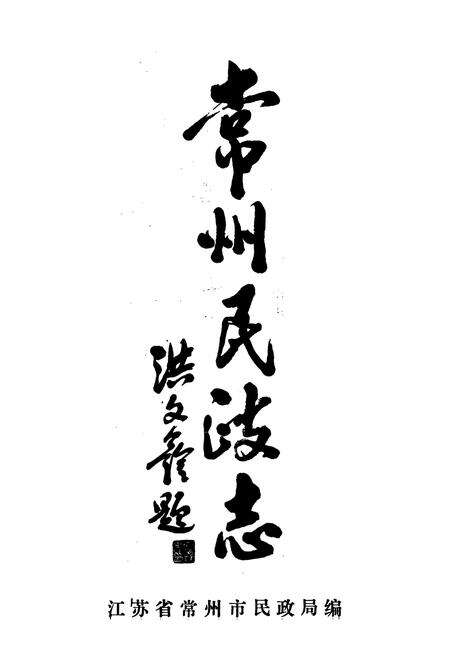 常州民政志
洪文鑫题
江苏省常州市民政局编